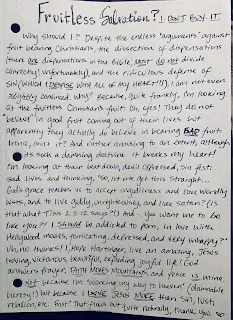 Fruitless Salvation? I DON'T BUY IT.
Why should I? Despite the endless "arguments" against
fruit bearing Christians, the dissection of dispensations
(there are dispensations in the Bible, most do not divide
correctly! unfortunately), and the ridiculous defense of
SIN (WHICH I DESPISE WITH ALL OF MY HEART!!!), I am not even
slightly convinced. Why? Because, quite frankly, I'm looking
at the fruitless Christian's fruit. Oh, yes! They do not
"believe" in good fruit coming out of their lives but
apparently they actually do believe in bearing BAD fruit.
Ironic, isn't it? And rather amusing to an extent, although
it is such a damning doctrine it breaks my heart!
I'm looking at their beat down, devil oppressed, sin filled
sad lives and thinking, "so, let me get this straight...
God's grace teaches us to accept ungodliness and love worldly
lusts, and to live giddy, unrighteously, and like satan? (Is
that what Titus 2:11-12 says?!) And... You want me to be
like you?! I should be addicted to porn, in love with
Hollywood movies, fornicating, depressed, and very unhappy?"
Uh, no thanks! I, Hope Hartinger, live an amazing, Jesus
loving, victorious, beautiful, exploding joyful life! God
answers prayer, FAITH MOVES MOUNTAINS, and peace is mine
Not because I'm "working my way to heaven" (damnable
heresy!) but because I LOVE JESUS MORE than sin, lust,
religion, etc. Fruit that flows out quite naturally, thank you. So